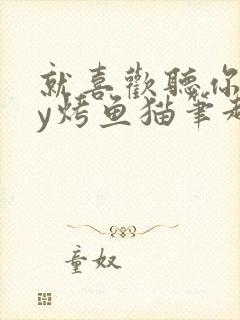 就喜歡聽你
y烤鱼猫筆趣
童奴